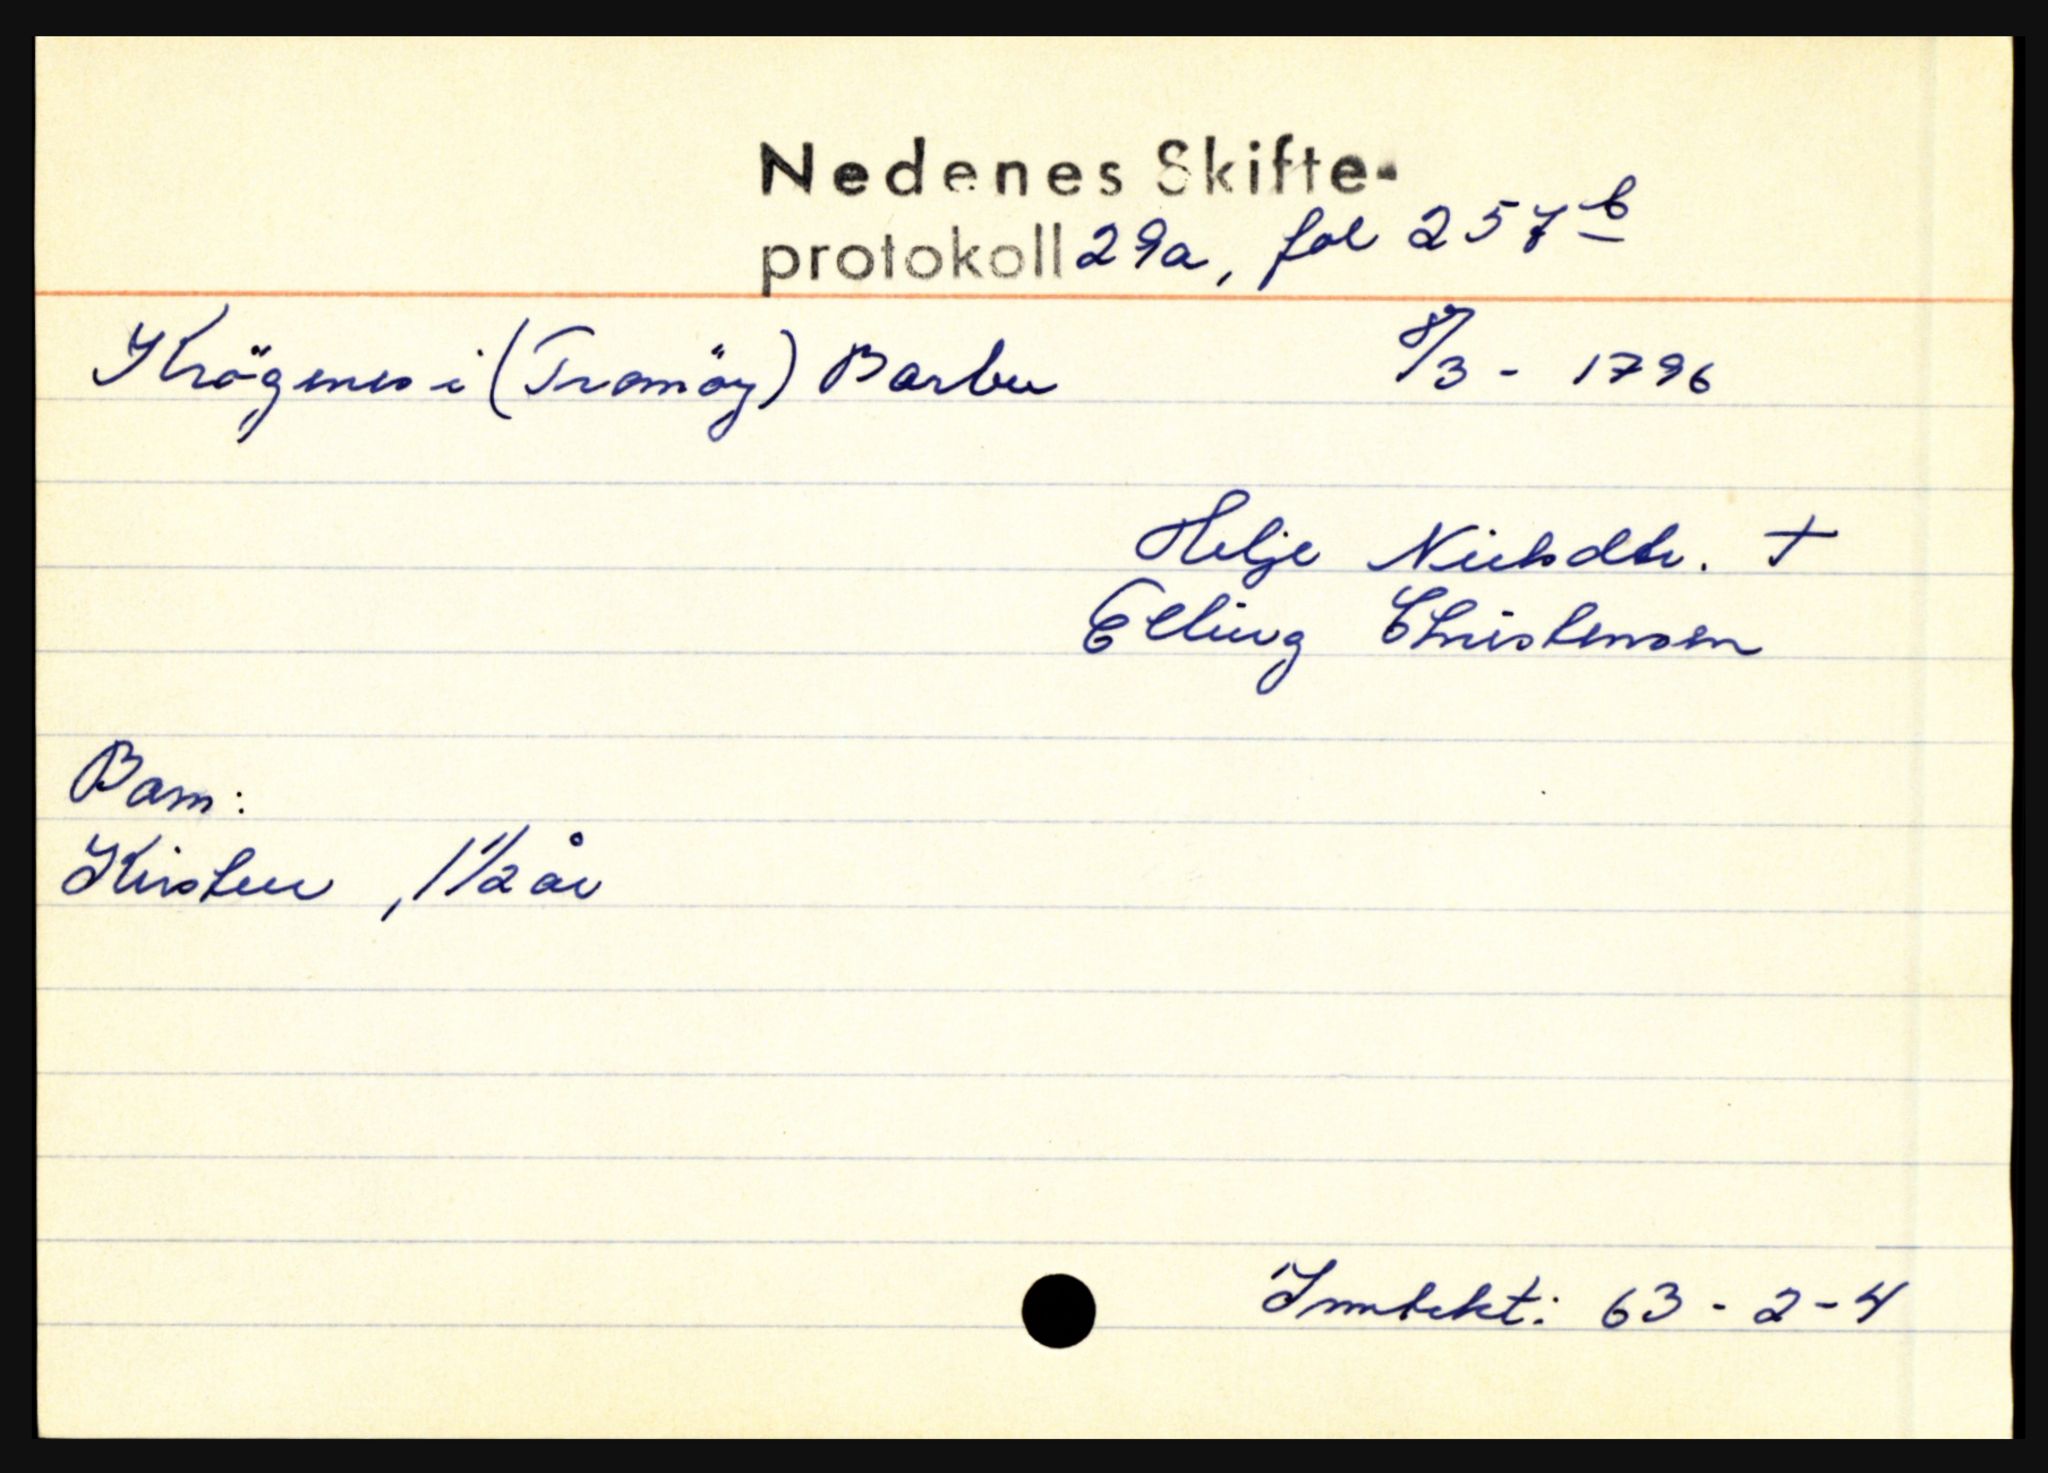 Nedenes Skifte-
protokoll 29a, fol 257b
Krögenes i (Tromöy) Barbu 8/3 - 1796
Helje Nielsdtr. +
Elling Christensen
Barn:
Kirsten , 1 1/2 år
Inntekt: 63 - 2 - 4